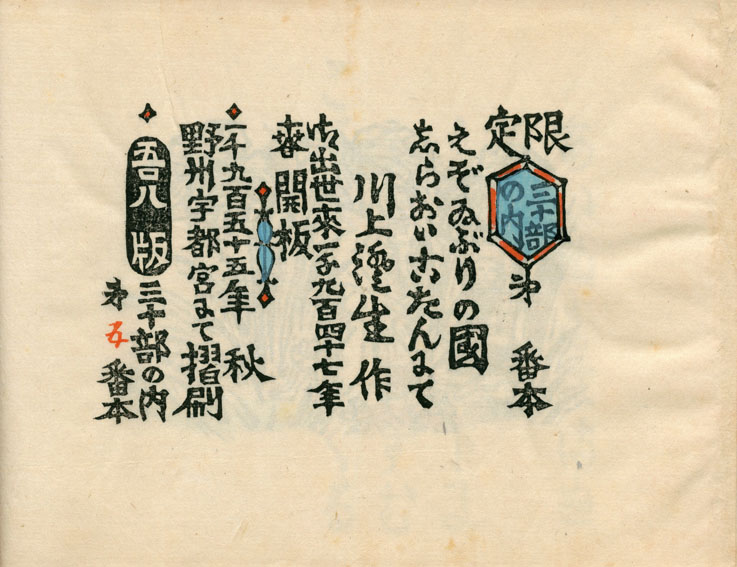 限定
三十部の内
第 番本
えぞゐぶりの國
志らおいこたんにて
川上澄生作
御出世来一千九百四十七年
春 開板
一千九百五十五年 秋
野州宇都宮にて摺刷
吾八版 三十部の内
第五番本